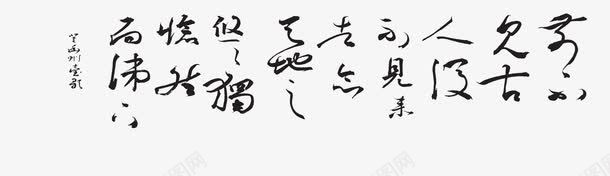 前不
见古
人後
不見来
者念
天地之
悠々獨
愴然
而涕下
登幽州臺歌